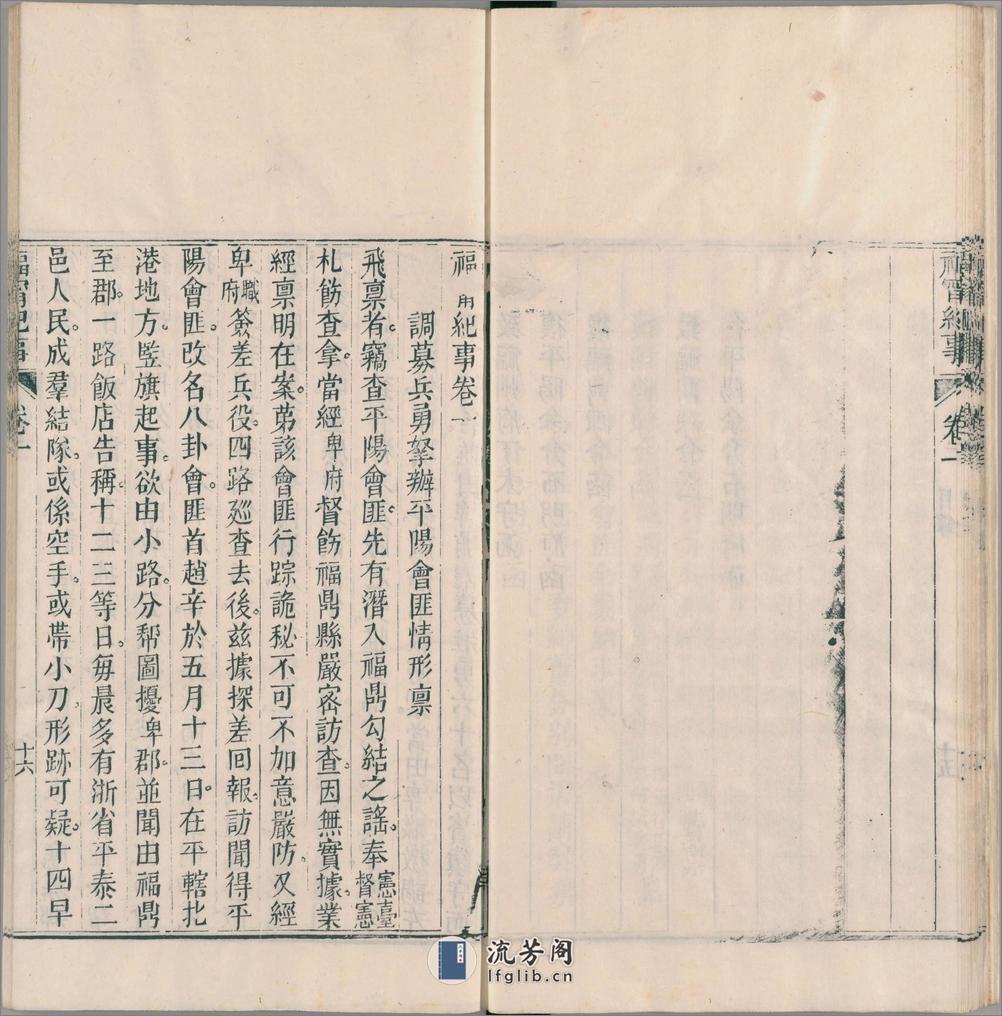 福甯紀事 卷一
福甯紀事卷一
調募兵勇拏辦平陽會匪情形禀
飛禀者竊查平陽會匪先有潛入福鼎勾結之謠奉憲臺督憲
札飭查拿當經卑府督飭福鼎縣嚴密訪查因無實據業
經禀明在案苐該會匪行踪詭秘不可不加意嚴防又經
卑職府簽差兵役四路廵查去後兹據探差回報訪聞得平
陽會匪改名八卦會匪首趙辛於五月十三日在平轄北
港地方竪旗起事欲由小路分帮圖擾卑郡並聞由福鼎
至郡一路飯店告稱十二三等日每晨多有浙省平泰二
邑人民成羣結隊或係空手或帶小刀形跡可疑十四早
福甯紀事 卷一 十六
流芳阁
lfglib.cn